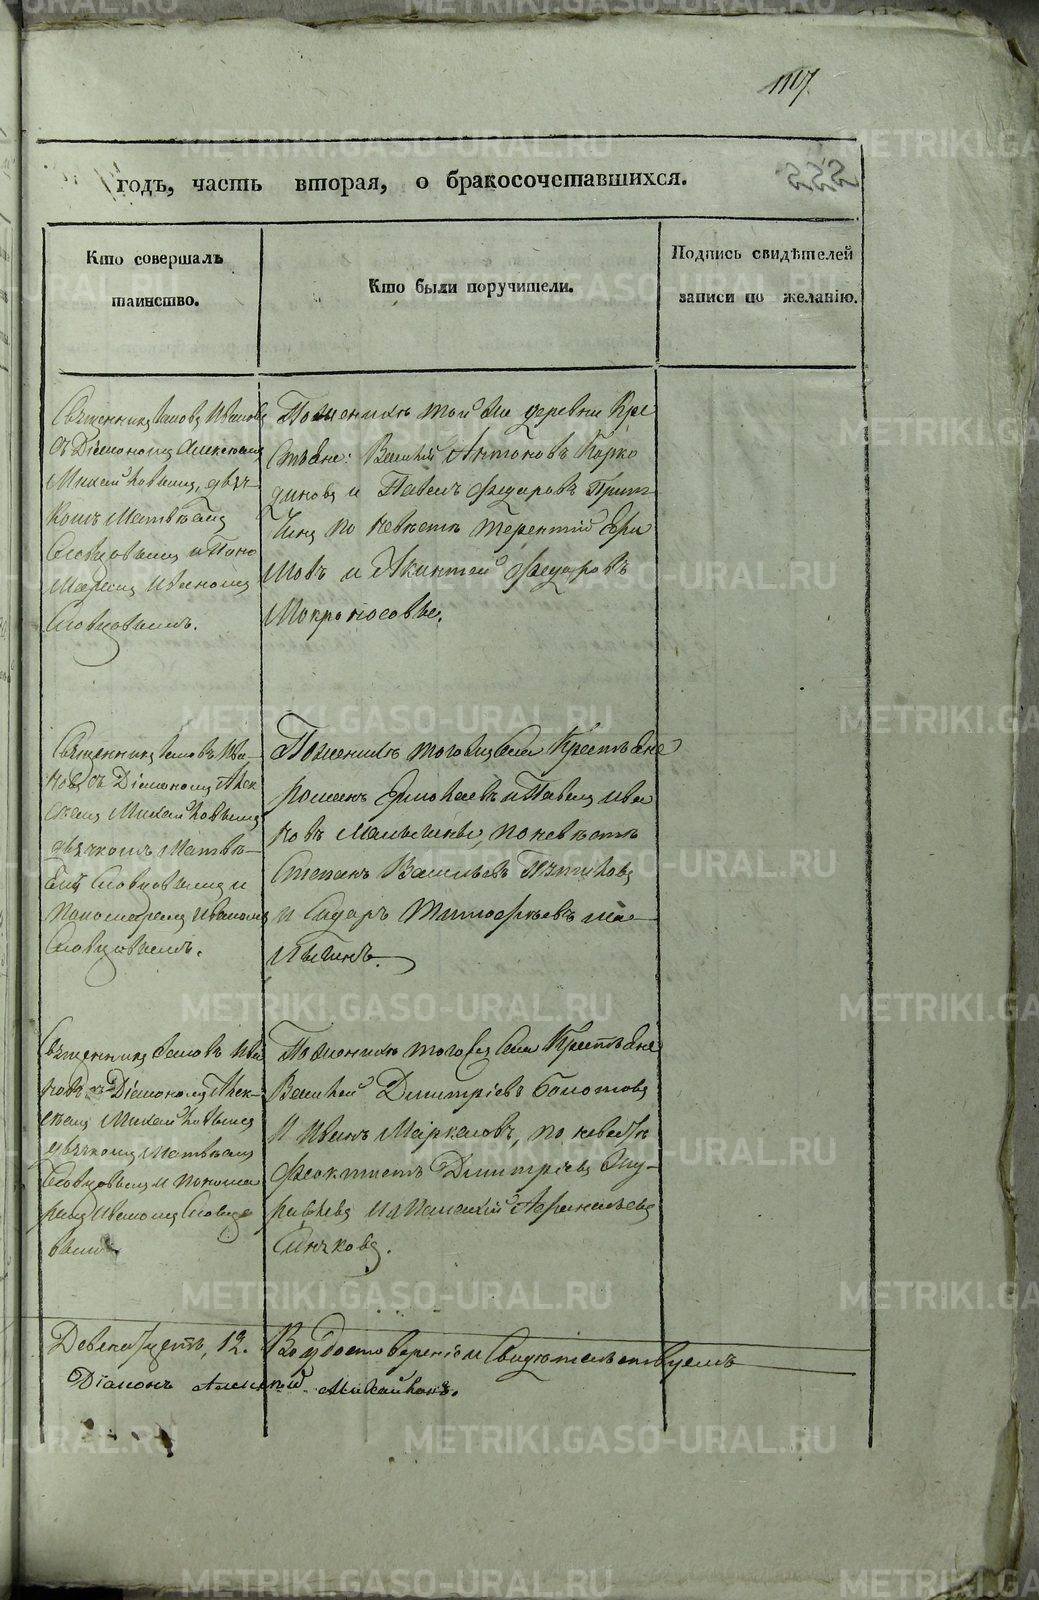 годъ, часть вторая, о бракосочетавшихся.
Кто совершалъ
таинство.
Кто были поручители.
Подпись свидѣтелей
записи по желанію.
Священникъ Іаковъ Ивановъ
съ Діакономъ Алексѣемъ
Михайловымъ, дьяч-
комъ Матвѣемъ
Словцовымъ и Поно
маремъ Иваномъ
Словцовымъ.
По женихѣ той же деревни Кре
стьяне: Василий Антоновъ
и Павелъ Федоровъ
по невѣстѣ Терентий
и Акинтей Федоровъ
Мокроносовы.
Священникъ Іаковъ Ива-
новъ съ Діакономъ Алек
сѣемъ Михайловымъ
дьячкомъ Матвѣ-
емъ Словцовымъ и
пономаремъ Иваномъ
Словцовымъ.
По женихѣ тогожъ села Крестьяне
романъ и Павелъ ива
новъ по невѣстѣ
Степанъ Васильевъ Пятковъ
и Сидоръ Тимофѣевъ ма
Священникъ Іаковъ Ива
новъ съ Діакономъ Алек-
сѣемъ Михайловымъ
дьячкомъ Матвѣемъ
Словцовымъ и понома
ремъ Иваномъ Словцо
вымъ.
По женихѣ тогожъ села Крестьяне
Василей Дмитріевъ Болотовъ
и Иванъ Маркеловъ, по невѣстѣ
Феоктистъ Дмитріевъ Жу-
равлевъ и
Синяковъ.
Двенатцеть, 12. Во удостовереніе Свидетельствуемъ
Діаконъ Алексѣй Михайловъ.
METRIKI.GASO-URAL.RU